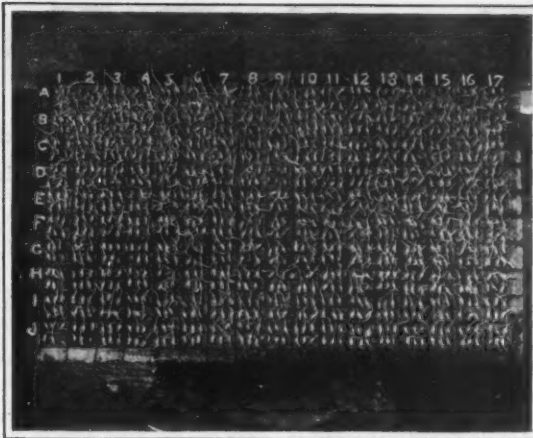 1 2 3 4 5 6 7 8 9 10 11 12 13 14 15 16 17
A
B
C
D
E
F
G
H
I
J